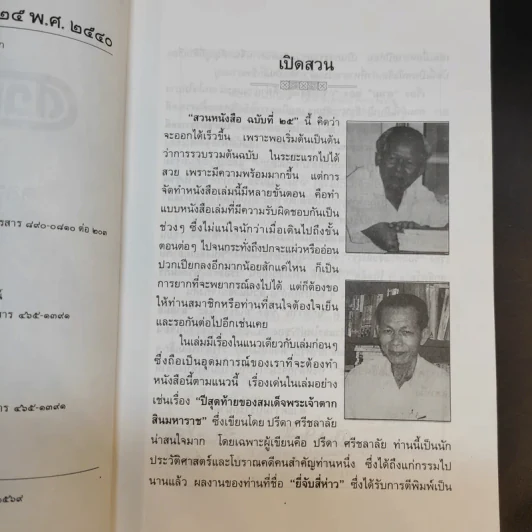 ๒๕ พ.ศ. ๒๕๔๐
รสาร ๘๙๐-๐๘๑๐ ต่อ ๒๐๑
าร ๔๖๕-๑๓๙๑
าร ๔๖๕-๑๓๙๑
เปิดสวน
"สวนหนังสือ ฉบับที่ ๒๕" นี้ คิดว่า
จะออกได้เร็วขึ้น เพราะพอเริ่มต้นเป็นต้น
ว่าการรวบรวมต้นฉบับ ในระยะแรกไปได้
สวย เพราะมีความพร้อมมากขึ้น แต่การ
จัดทำหนังสือเล่มนี้มีหลายขั้นตอน คือทำ
แบบหนังสือเล่มที่มีความรับผิดชอบกันเป็น
ช่วงๆ ซึ่งไม่แน่ใจนักว่าเมื่อเดินไปถึงขั้น
ตอนต่อๆ ไปจนกระทั่งถึงปกจะแผ่วหรืออ่อน
ปวกเปียกลงอีกมากน้อยสักแค่ไหน ก็เป็น
การยากที่จะพยากรณ์ลงไปได้ แต่ก็ต้องขอ
ให้ท่านสมาชิกหรือท่านที่สนใจต้องใจเย็น
และรอกันต่อไปอีกเช่นเคย
ในเล่มมีเรื่องในแนวเดียวกับเล่มก่อนๆ
ซึ่งถือเป็นอุดมการณ์ของเราที่จะต้องทำ
หนังสือนี้ตามแนวนี้ เรื่องเด่นในเล่มอย่าง
เช่นเรื่อง "ปีสุดท้ายของสมเด็จพระเจ้าตาก
สินมหาราช" ซึ่งเขียนโดย ปรีดา ศรีชลาลัย
น่าสนใจมาก โดยเฉพาะผู้เขียนคือ ปรีดา ศรีชลาลัย ท่านนี้เป็นนัก
ประวัติศาสตร์และโบราณคดีคนสำคัญท่านหนึ่ง ซึ่งได้ถึงแก่กรรมไป
นานแล้ว ผลงานของท่านที่ชื่อ "ยี่จับสี่ห่าว" ซึ่งได้รับการตีพิมพ์เป็น